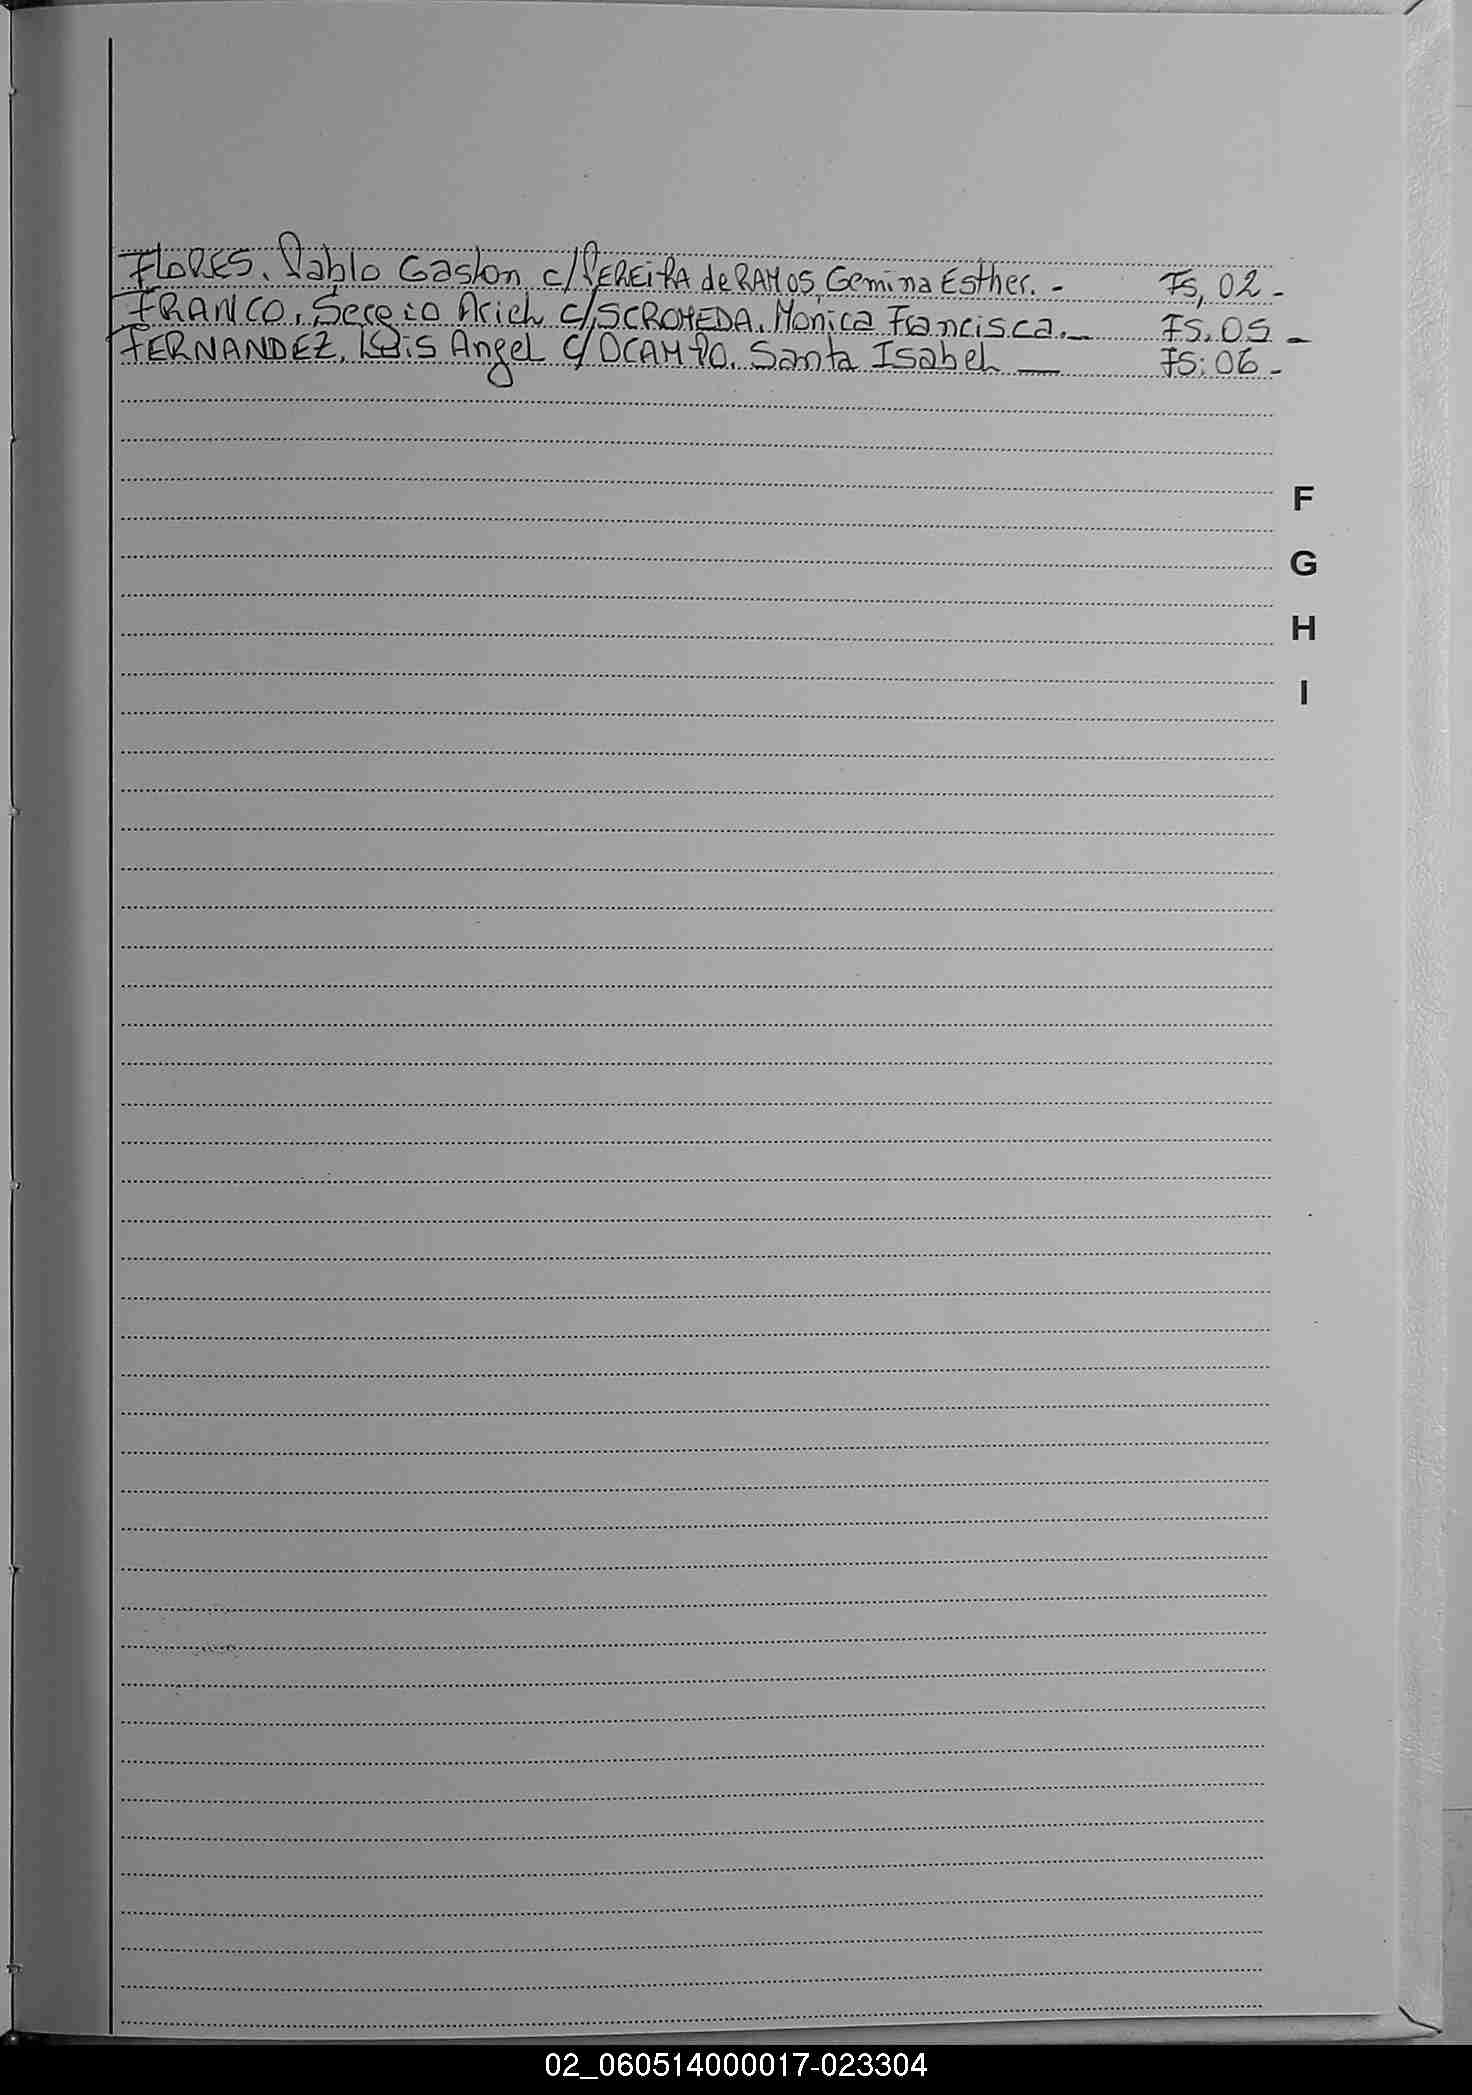 FLORES, Pablo Gaston c/PEREIRA de RAMOS, Gemina Esther. - Fs, 02 -
FRANCO, Sergio Arich c/SCROMEDA, Monica Francisca. - FS. 05 -
FERNANDEZ, Luis Angel c/OCAMPO, Santa Isabel — FS: 06 -
F
G
H
I
02_060514000017-023304